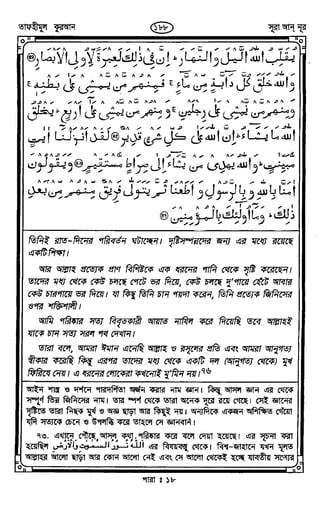 তাফহীমুল কুরআন
১৮৮
সূরা আন্ নূর
يُقَلِّبُ اللهُ الَّيْلَ وَالنَّهَارَ ۚ إِنَّ فِي ذٰلِكَ لَعِبْرَةً لِّأُولِي الْأَبْصَارِ ﴿٤٤﴾
وَاللهُ خَلَقَ كُلَّ دَابَّةٍ مِّنْ مَّاءٍ ۚ فَمِنْهُمْ مَّنْ يَّمْشِي عَلَىٰ بَطْنِهٖ ۚ
وَمِنْهُمْ مَّنْ يَّمْشِي عَلَىٰ رِجْلَيْنِ ۚ وَمِنْهُمْ مَّنْ يَّمْشِي عَلَىٰ أَرْبَعٍ ۚ يَخْلُقُ
اللهُ مَا يَشَاءُ ۚ إِنَّ اللهَ عَلَىٰ كُلِّ شَيْءٍ قَدِيرٌ ﴿٤٥﴾ لَقَدْ أَنْزَلْنَا اٰيٰتٍ
مُّبَيِّنٰتٍ ۚ وَاللهُ يَهْدِي مَنْ يَّشَاءُ إِلَىٰ صِرَاطٍ مُّسْتَقِيمٍ ﴿٤٦﴾ وَيَقُولُونَ
اٰمَنَّا بِاللهِ وَبِالرَّسُولِ وَأَطَعْنَا ثُمَّ يَتَوَلَّىٰ فَرِيقٌ مِّنْهُمْ مِّنْ بَعْدِ
ذٰلِكَ ۚ وَمَا أُولٰئِكَ بِالْمُؤْمِنِينَ ﴿٤٧﴾
তিনিই রাত-দিনের পরিবর্তন ঘটাচ্ছেন। দৃষ্টিসম্পন্নদের জন্য এর মধ্যে রয়েছে
একটি শিক্ষা।
আর আল্লাহ প্রত্যেক প্রাণ বিশিষ্টকে এক ধরনের পানি থেকে সৃষ্টি করেছেন।
তাদের মধ্য থেকে কেউ চলছে পেটে ভর দিয়ে, কেউ চলছে দু'পায়ে হেঁটে আবার
কেউ চারপায়ে ভর দিয়ে। যা কিছু তিনি চান পয়দা করেন, তিনি প্রত্যেক জিনিসের
ওপর শক্তিশালী।
আমি পরিষ্কার সত্য বিবৃতকারী আয়াত নাযিল করে দিয়েছি তবে আল্লাহই
যাকে চান সত্য সরল পথ দেখান।
তারা বলে, আমরা ঈমান এনেছি আল্লাহ ও রসূলের প্রতি এবং আমরা আনুগত্য
স্বীকার করেছি কিন্তু এরপর তাদের মধ্য থেকে একটি দল (আনুগত্য থেকে) মুখ
ফিরিয়ে নেয়। এ ধরনের লোকেরা কখনোই মু'মিন নয়।৭৬
আইন শাস্ত্র ও দর্শনে পারদর্শিতা অর্জন করার নাম জ্ঞান। কিন্তু আসল জ্ঞান এর থেকে
সম্পূর্ণ ভিন্ন জিনিসের নাম। তার স্পর্শ থেকে তারা অনেক দূরে রয়ে গেছে। সেই জ্ঞানের
দৃষ্টিতে তারা নিছক মূর্খ ও অজ্ঞ ছাড়া আর কিছুই নয়। অন্যদিকে একজন অশিক্ষিত গেঁয়ো
যদি সত্যকে চেনে ও উপলব্ধি করে তাহলে সে জ্ঞানবান।
৭৩. এখানে পৌঁছে আসল কথা পরিষ্কার করে বলে দেয়া হয়েছে। এর সূচনা করা
হয়েছিল اَللهُ نُورُ السَّمٰوٰتِ وَالْأَرْضِ এর বিষয়বস্তু থেকে। বিশ্ব-জাহানে যখন মূলত
আল্লাহর আলো ছাড়া আর কোন আলো নেই এবং সে আলো থেকেই হচ্ছে যাবতীয় সত্যের
পারা ঃ ১৮